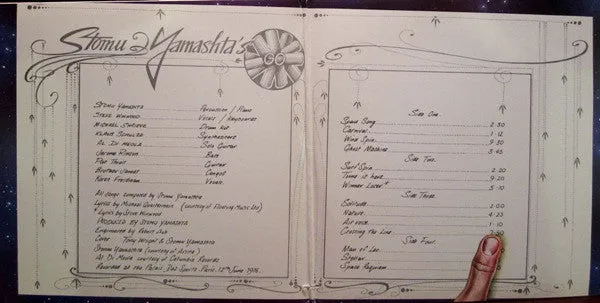 Stomu Yamashta's
GO
Stomu Yamashta Percussion / Piano
Steve Winwood Vocals / Keyboards
Michael Shrieve Drum Kit
Klaus Schulze Synthesizers
Al Di Meola Solo Guitar
Jerome Rimson Bass
Pat Thrall Guitar
Brother James Congas
Karen Friedman Vocals
All songs composed by Stomu Yamashta
Lyrics by Michael Quartermain (courtesy of Floating Music Ltd)
* Lyrics by Steve Winwood
Produced by Stomu Yamashta
Engineered by Robert Ash
Cover Tony Wright & Stomu Yamashta
Stomu Yamashta (courtesy of Arista)
Al Di Meola courtesy of Columbia Records
Recorded at the Palais Des Sports Paris 12th June 1976.
Side One.
Space Song 2·30
Carnival 1·12
Wind Spin 9·30
Ghost Machine 3·45
Side Two.
Surf Spin 2·20
Time is here 9·20
Winner Loser * 5·10
Side Three.
Solitude
Nature 4·23
Air voice 1·10
Crossing the Line
Side Four.
Man of Leo
Stellar
Space Requiem